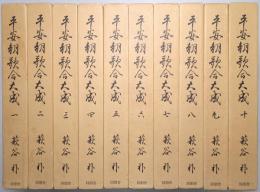 平安朝歌合大成 一 萩谷 朴
平安朝歌合大成 二 萩谷 朴
平安朝歌合大成 三 萩谷 朴
平安朝歌合大成 四 萩谷 朴
平安朝歌合大成 五 萩谷 朴
平安朝歌合大成 六 萩谷 朴
平安朝歌合大成 七 萩谷 朴
平安朝歌合大成 八 萩谷 朴
平安朝歌合大成 九 萩谷 朴
平安朝歌合大成 十 萩谷 朴